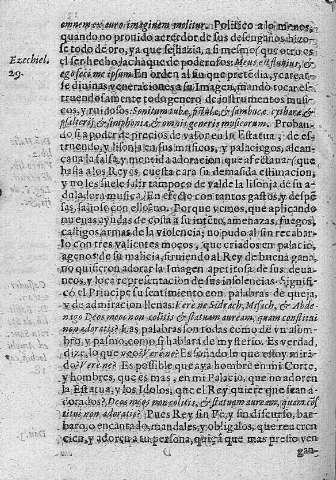 omnem ex auro imaginem molitur. Politico a lo menos,
quando no provido acertador de sus desengaños hizo-
se todo de oro, ya que se hazia, a si mesmo; que otro es
Ezechiel. el ser hecho la chaque de poderosos: Meus est fluvius, &
29. ego feci me ipsum. En orden al sin que pretedia, y carear-
se divinas veneraciones a su imagen, mandò tocar el-
truendosamente todo genero de instrumentos musi-
cos, y ruidosos. Sonitum tubæ, fistulæ, & sambucæ, cytharæ &
psalterij, & symphoniæ & omnis generis musicorum. Proban-
do si a poder de precios de valor en la Estatua; de es-
truendo, y lisonja en sus musicos, y palaciegos, alcan-
cana la falsa, y mentida adoracion que afectaua: (que
hasta a los Reyes cuesta cara su demasiada estimacion,
y no les suele salir tampoco de valde la lisonja de su a-
duladora musica.) En efecto con tantos gastos, y despen-
sas, saliose con ello no. Porque vemos, que aplicando
nuevas ayudas de costa a su intento, amenazas, fuegos,
castigos armas de la violencia; no pudo al fin recabar-
lo con tres valientes moços, que criados en palacio,
agenos de su malicia, sirviendo al Rey de buena gana,
no quisieron adorar la Imagen apetitosa de sus deva-
neos, y loca representacion de sus insolencias. Signifi-
cò el Principe su sentimiento con palabras de queja,
y de admiracion llenas: Vere ne Sidrach, Misach, & Abde-
nago Deos meos non colitis, & statuam auream, quam constitui
non adoratis? Las palabras son todas como de vn assom-
bro, y pasmo, como si hablara de mysterio. Es verdad,
dize, lo que veo? Vere ne? Es soñado lo que estoy miran-
do? Vere ne? Es possible que aya hombre en mi Corte,
y hombres, que es mas, en mi Palacio, que no adoren
la Estatua, y los Idolos, que el Rey quiere que sean a-
dorados? Deos meos non colitis, & statuam auream, quam cos-
titui non adoratis? Pues Rey sin Fè, y sin discurso, bar-
baro, o encantado, mandales, y obligalos, que reveren-
cien, y adoren a tu persona, quiçà que mas presto ven
gan-